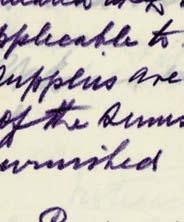 pplicable to
upplies are
of the sums
urnished